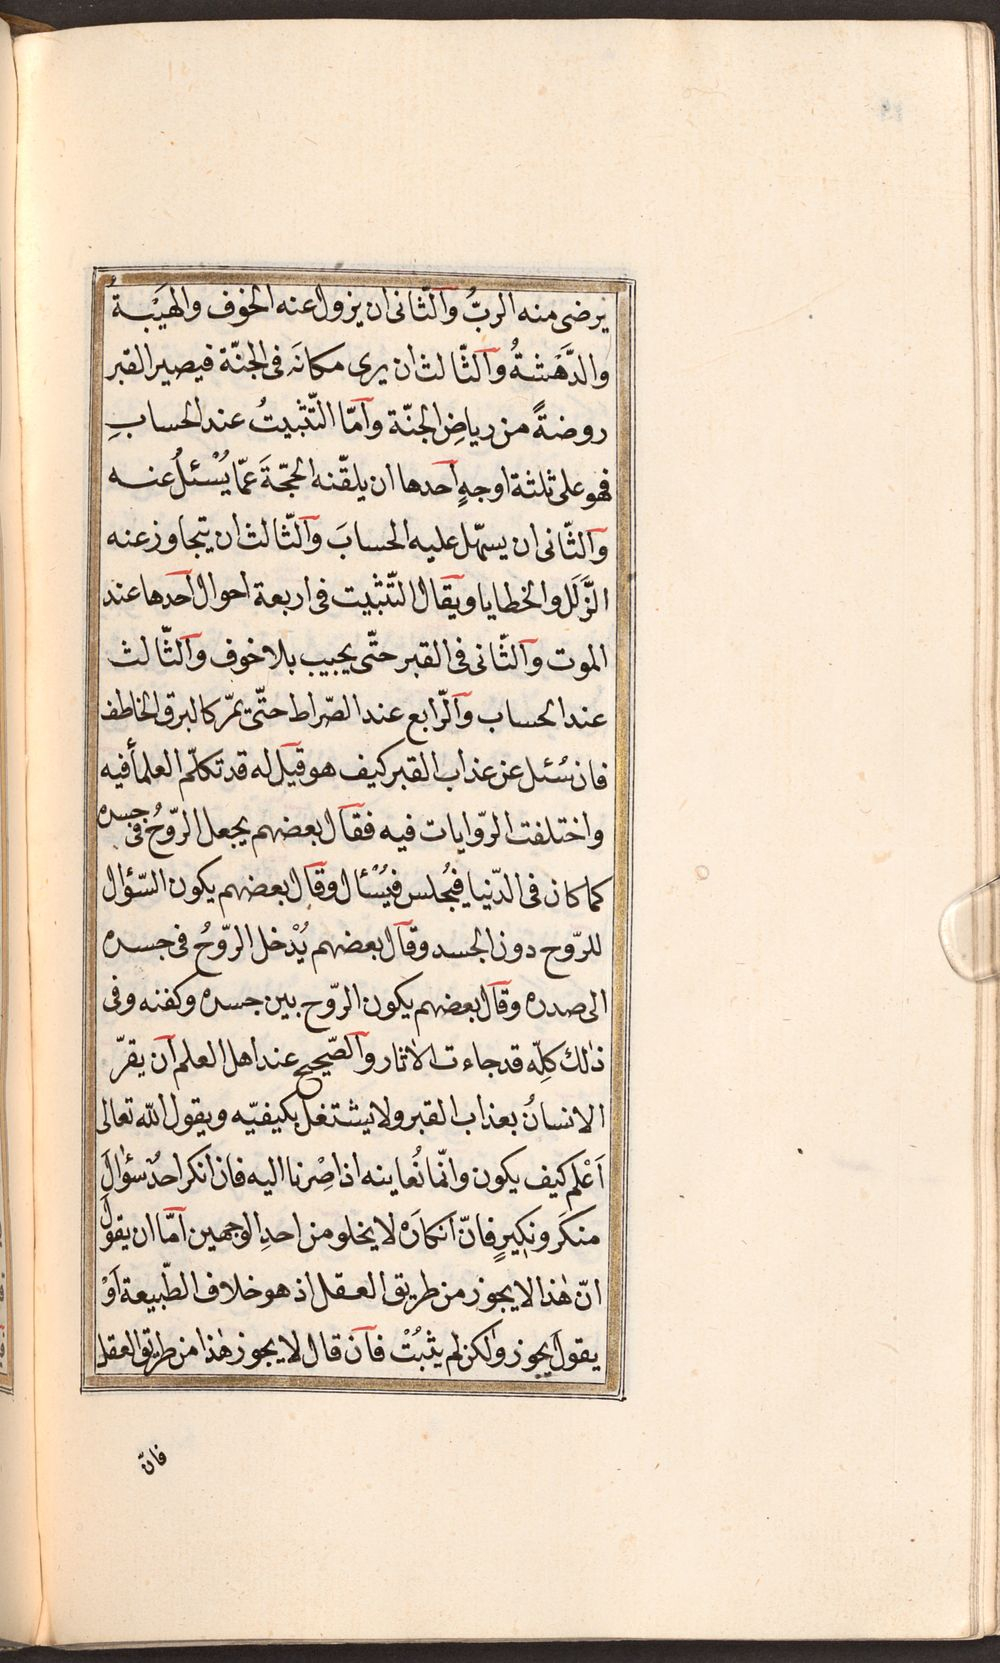 يرضى منه الربُّ والثّانى ان يزول عنه الخوف والهَيْبةُ
والدَّهْشةُ والثّالث ان يرى مكانَه فى الجنّة فيصير القبر
روضةً من رياضِ الجنّة وامّا التّثبيتُ عند الحسابِ
فهو على ثلثة اوجهٍ احدها ان يلقّنه الحجّةَ عمّا يُسْئلُ عنه
والثّانى ان يسهّل عليه الحسابَ والثّالث ان يتجاوز عنه
الزَّلَل والخطايا ويقال التّثبيت فى اربعة احوال احدها عند
الموت والثّانى فى القبر حتّى يجيب بلا خوف والثّالث
عند الحساب والرّابع عند الصّراط حتّى يمّر كالبرق الخاطف
فان سُئل عن عذاب القبر كيف هو قيل له قد تكلّم العلمأ فيه
واختلفت الرّوايات فيه فقال بعضهم يجعل الرّوحُ فى جسده
كما كان فى الدّنيا فيُجلس فيُسْئال وقال بعضهم يكون السّؤال
للرّوح دون الجسد وقال بعضهم يُدْخل الرّوحُ فى جسده
الى صدره وقال بعضهم يكون الرّوح بين جسده وكفنه وفى
ذٰلك كلِّه قد جاءت الاٰثار والصّحيح عند اهل العلم ان يقرّ
الانسانُ بعذاب القبر ولا يشتغل بكيفيّه ويقول اللّه تعالى
اَعْلم كيف يكون وانّما نُعاينه اذا صِرْنا اليه فان انكر احدٌ سؤالَ
منكَر ونكيرٍ فانّ انكارَه لا يخلو من احدِ الوجهين امّا ان يقولَ
انّ هٰذا لا يجوز من طريق العقل اذ هو خلاف الطّبيعة اَوْ
يقول يجوز ولٰكن لم يثبُتْ فان قال لا يجوز هٰذا من طريق العقل
فانّ